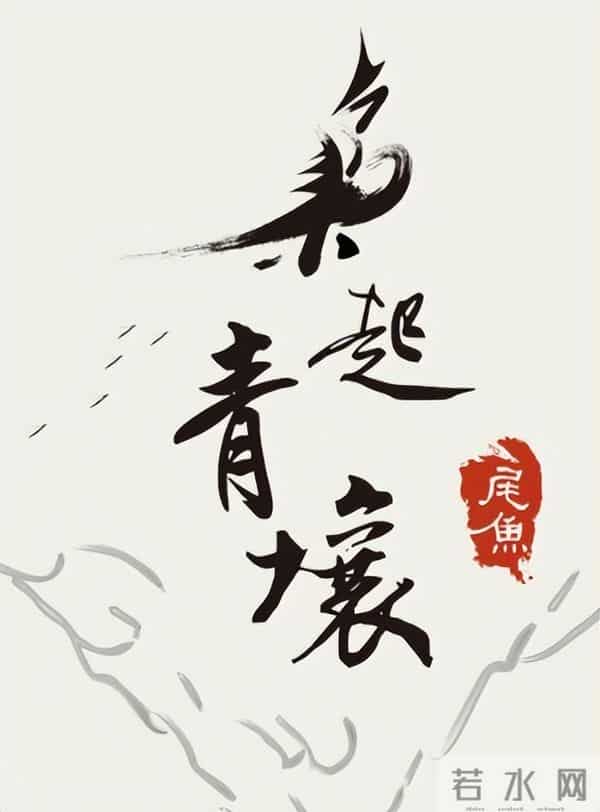 枭起青壤
尾魚
若水网